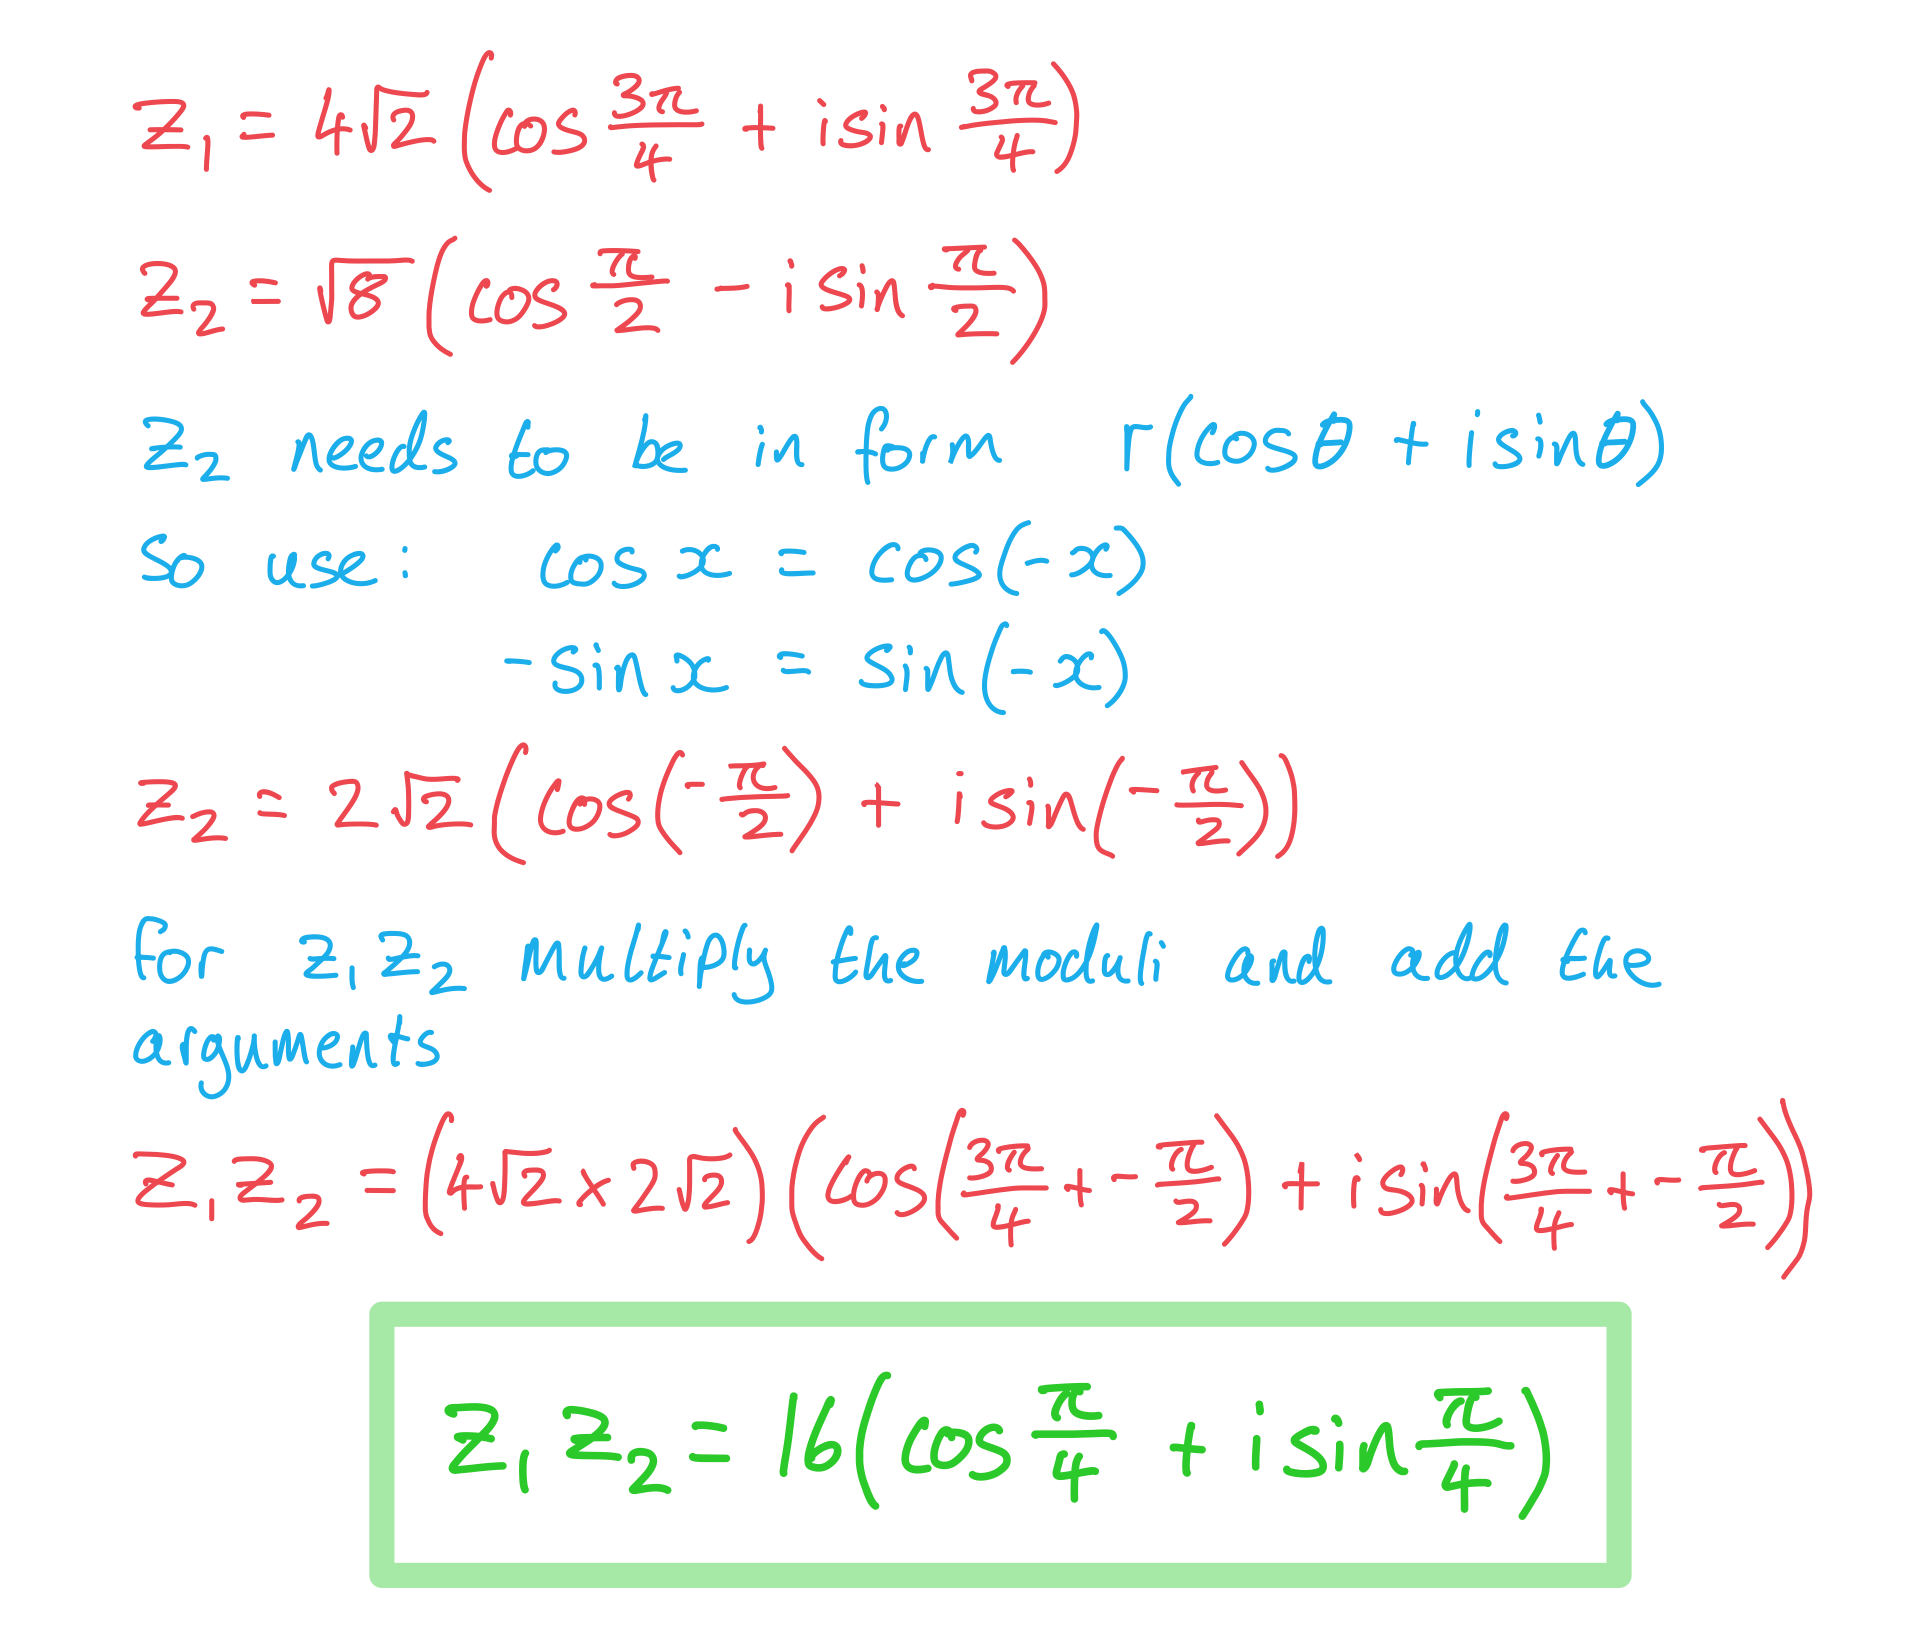 z₁ = 4√2 (cos 3π/4 + i sin 3π/4)
z₂ = √8 (cos π/2 - i sin π/2)
z₂ needs to be in form r(cosθ + i sinθ)
So use: cos x = cos(-x)
-sin x = sin(-x)
z₂ = 2√2 (cos(-π/2) + i sin(-π/2))
For z₁z₂ multiply the moduli and add the
arguments
z₁z₂ = (4√2 × 2√2)(cos(3π/4 + -π/2) + i sin(3π/4 + -π/2))
z₁z₂ = 16(cos π/4 + i sin π/4)